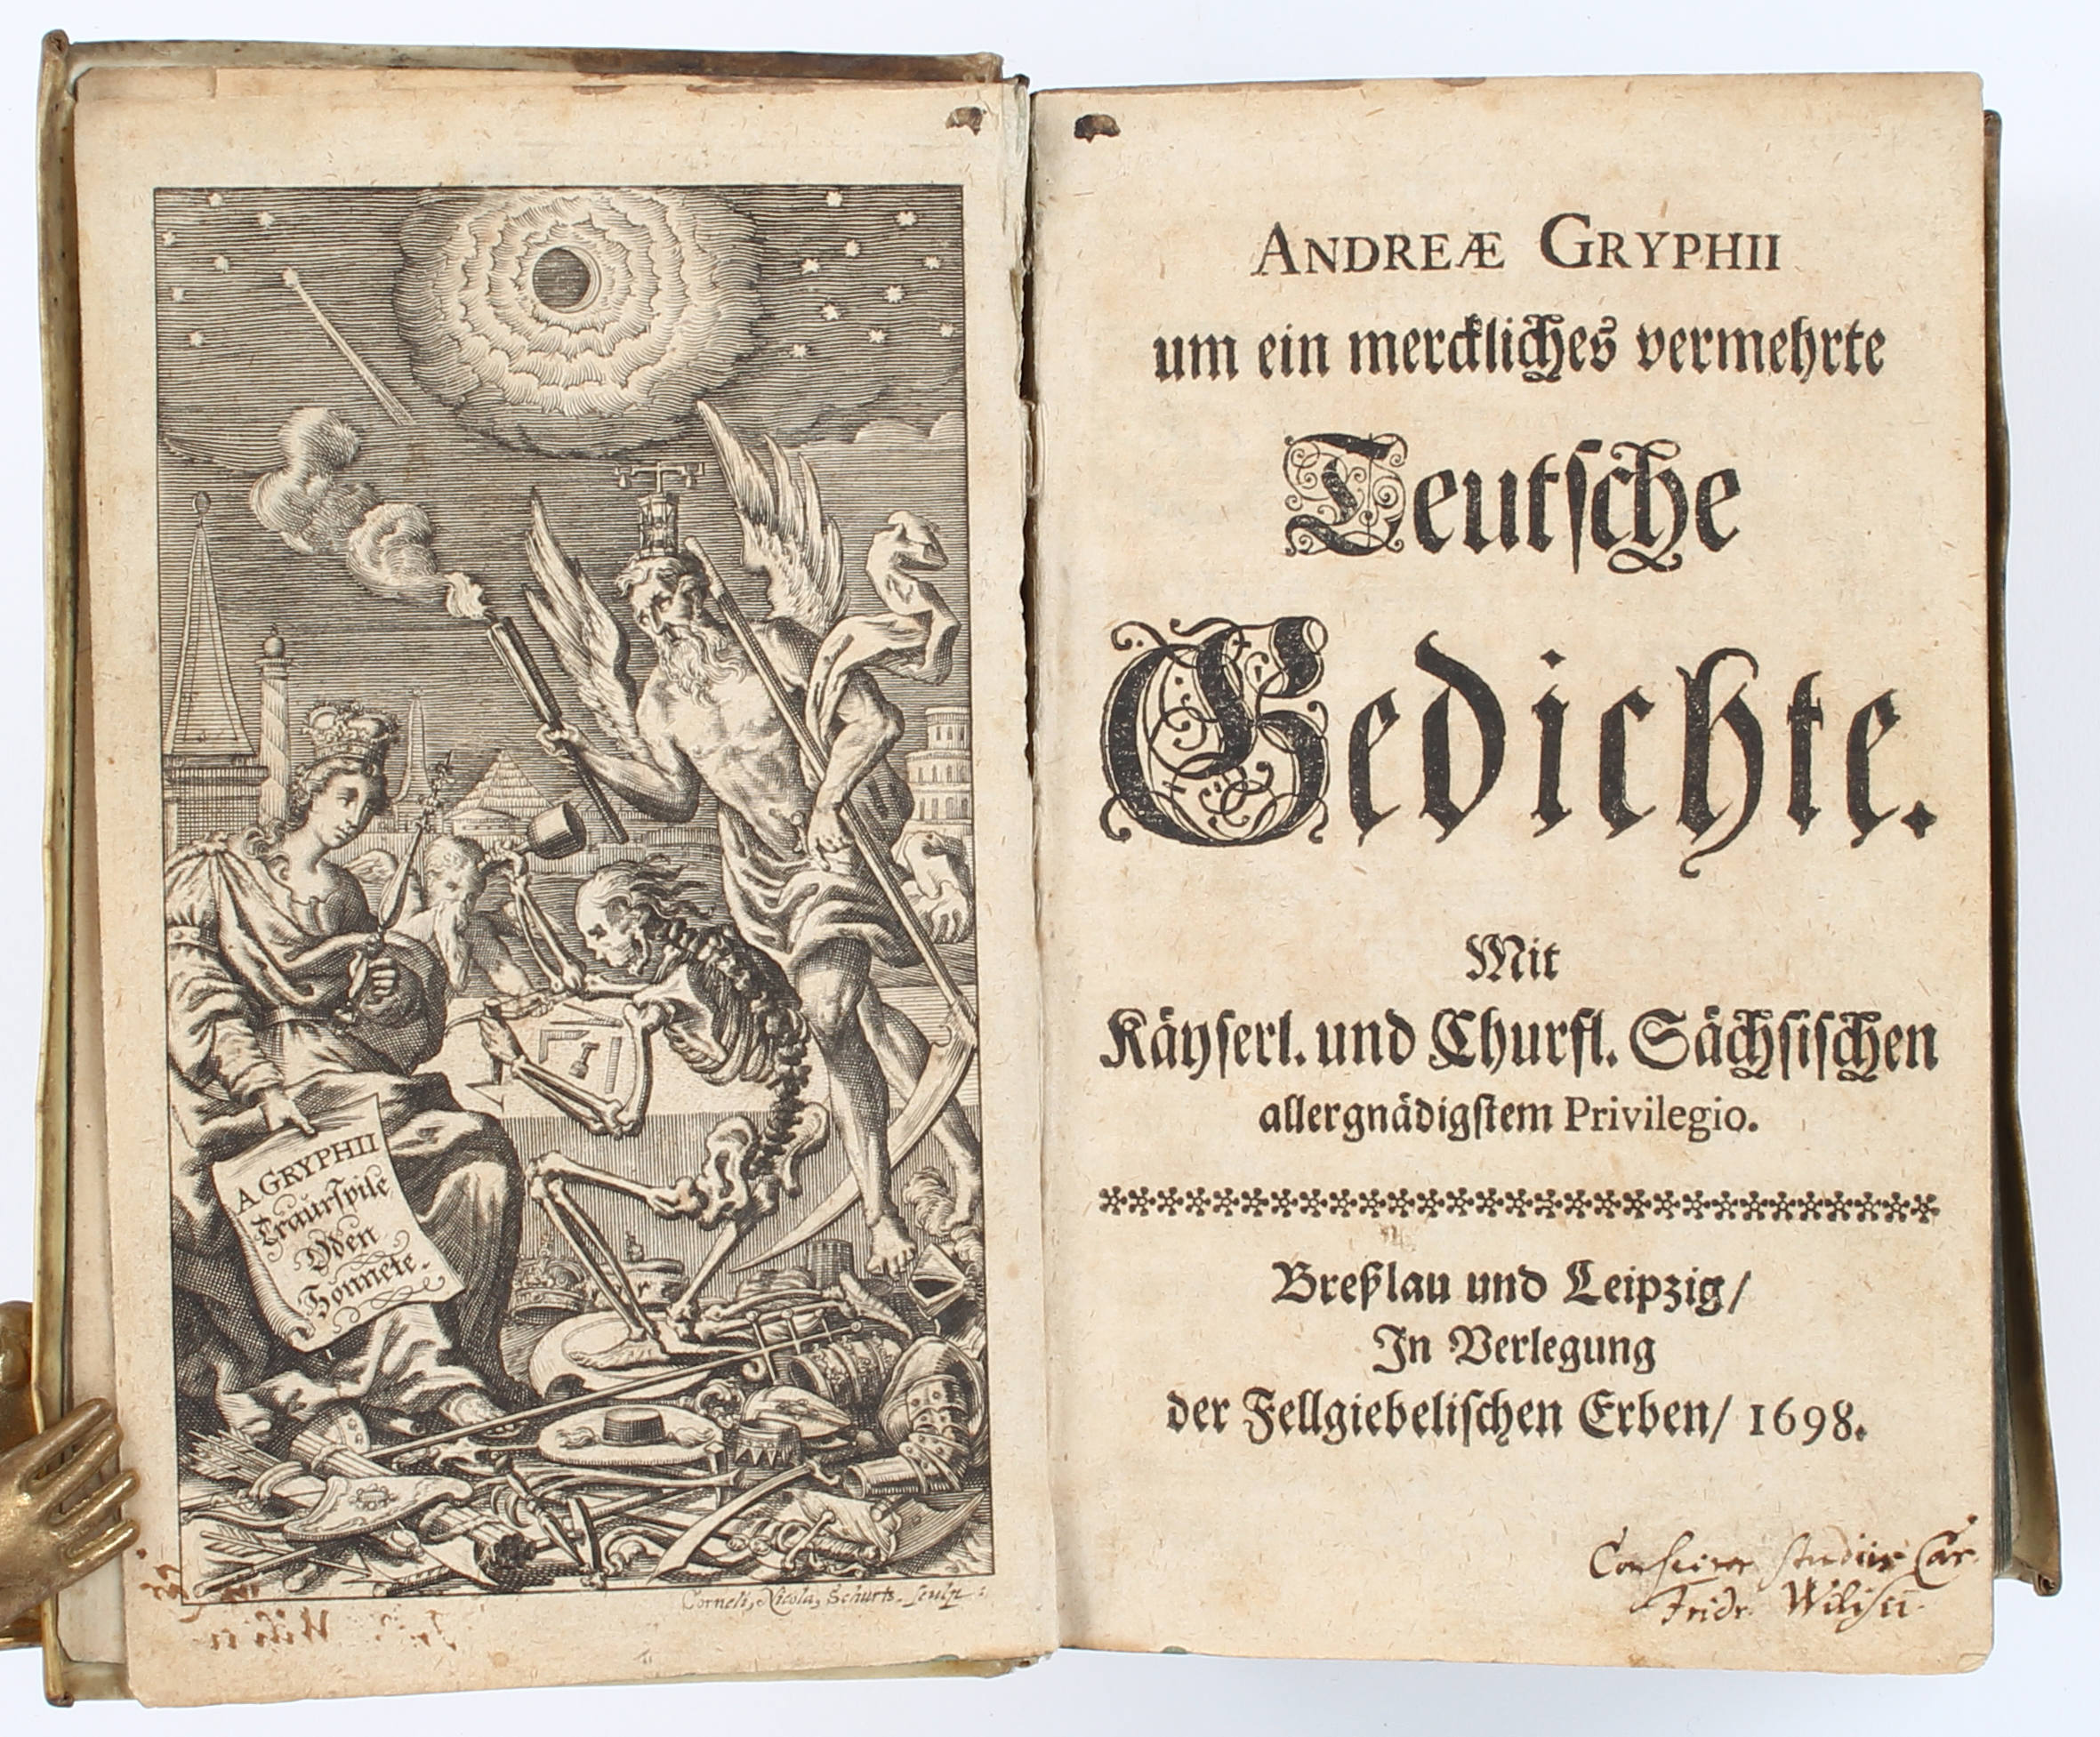 A GRYPHII
Traurspile
Oden
Sonnete.
Corneli, Nicola, Schurts. sculp:
ANDREÆ GRYPHII
um ein merckliches vermehrte
Teutsche
Gedichte.
Mit
Käyserl. und Churfl. Sächsischen
allergnädigstem Privilegio.
Breßlau und Leipzig/
In Verlegung
der Fellgiebelischen Erben/ 1698.
Car.
Fridr. Wilisii